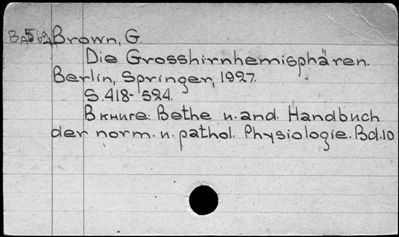 Brown, G.
Die Grosshirnhemisphären.
Berlin, Springer, 1927.
S. 418-524.
В книге: Bethe u. and. Handbuch
der norm. u. pathol. Physiologie. Bd. 10